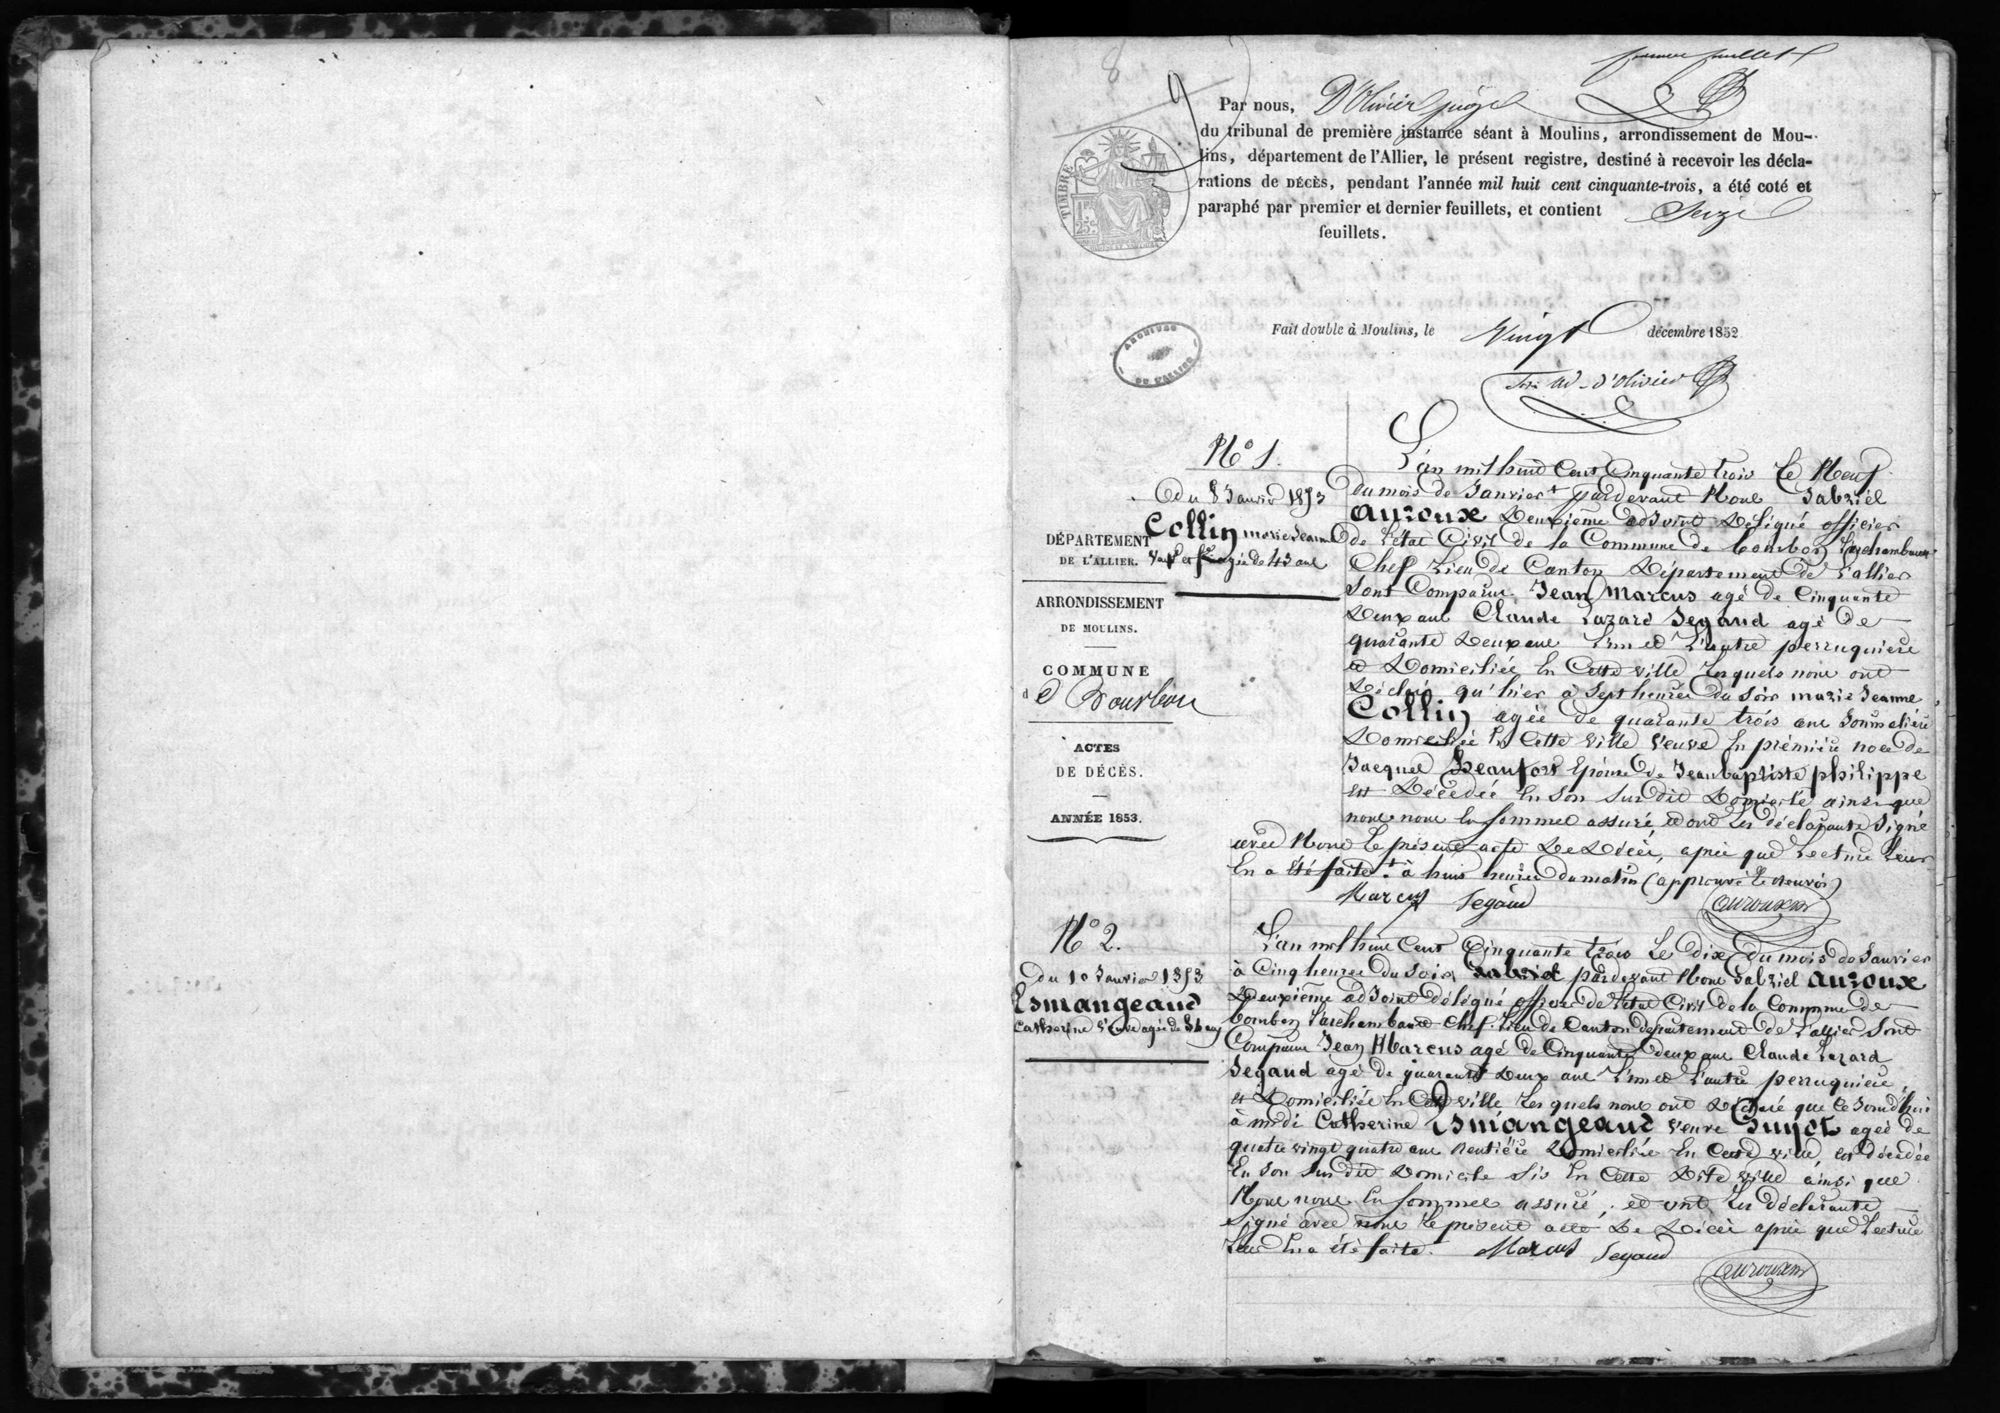 8
premier feuillet
Par nous, D'Olivier juge
du tribunal de première instance séant à Moulins, arrondissement de Mou-
lins, département de l'Allier, le présent registre, destiné à recevoir les décla-
rations de DÉCÈS, pendant l'année mil huit cent cinquante-trois, a été coté et
paraphé par premier et dernier feuillets, et contient Seize
feuillets.
TIMBRE
25c
Fait double à Moulins, le Vingt décembre 1852
ARCHIVES
DE L'ALLIER
ad. d'Olivier
No 1.
Du 8 Janvier 1853
Collin marie Jeanne
agée de 43 ans
DÉPARTEMENT
DE L'ALLIER.
ARRONDISSEMENT
DE MOULINS.
COMMUNE
de Bourbon
ACTES
DE DÉCÈS.
ANNÉE 1853.
L'an mil huit Cent Cinquante trois Le Neuf
du mois de Janvier + pardevant Nous Gabriel
auroux Deuxième adjoint Délégué officier
de L'état Civil de la Commune de bourbon L'archambault
Chef Lieu de Canton Département de L'allier
Sont Comparus Jean Marcus agé de Cinquante
Deux ans Claude Lazard Segaud agé de
quarante Deux ans L'un et L'autre perruquiers
et Domiciliés En Cette ville Lesquels nous ont
Déclaré qu'hier à Sept heures du Soir marie Jeanne
Collin agée de quarante trois ans Journalière
Domiciliée En Cette ville veuve En première noce de
Jacques Beaufort Epouse de Jean baptiste philippe
est Décédée En Son Sus dit Domicile ainsi que
nous nous En Sommes assuré et ont Les déclarants Signé
avec Nous Le présent acte De Décès, après que Lecture Leur
En a été faite. + à huit heures du matin (approuvé Le Renvoi)
Marcus Segaud Auroux
No 2.
du 10 Janvier 1853
Esmangeaud
Catherine Veuve agée de 84 ans
L'an mil huit Cent Cinquante trois Le dix du mois de Janvier
à Cinq heures du Soir Gabriel pardevant Nous Gabriel auroux
Deuxième adjoint délégué officier de L'état Civil de la Commune de
bourbon L'archambault Chef-Lieu de Canton département de L'allier Sont
Comparus Jean Marcus agé de Cinquante deux ans Claude Lazard
Segaud agé de quarante Deux ans L'un et L'autre perruquiers
et Domiciliés En Cette ville Les quels nous ont Déclaré que Ce Jourd'hui
à midi Catherine Esmangeaud veuve Guyot agée de
quatre vingt quatre ans Rentière Domiciliée En Cette ville est décédée
En Son Sus dit Domicile Sis En Cette Dite ville ainsi que
Nous nous En Sommes assuré, et ont Les déclarants
Signé avec nous Le présent acte De Décès après que Lecture
Leur En a été faite. Marcus Segaud
Auroux